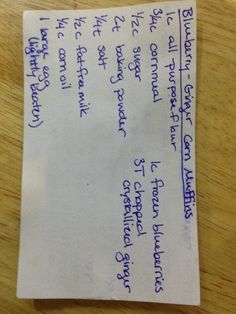 Blueberry - Ginger Corn Muffins
1c all purpose flour
3/4c cornmeal
1/2c sugar
2t baking powder
1/4t salt
1/2c fat free milk
1/4c corn oil
1 large egg
(lightly beaten)
1c frozen blueberries
3T chopped
crystallized ginger